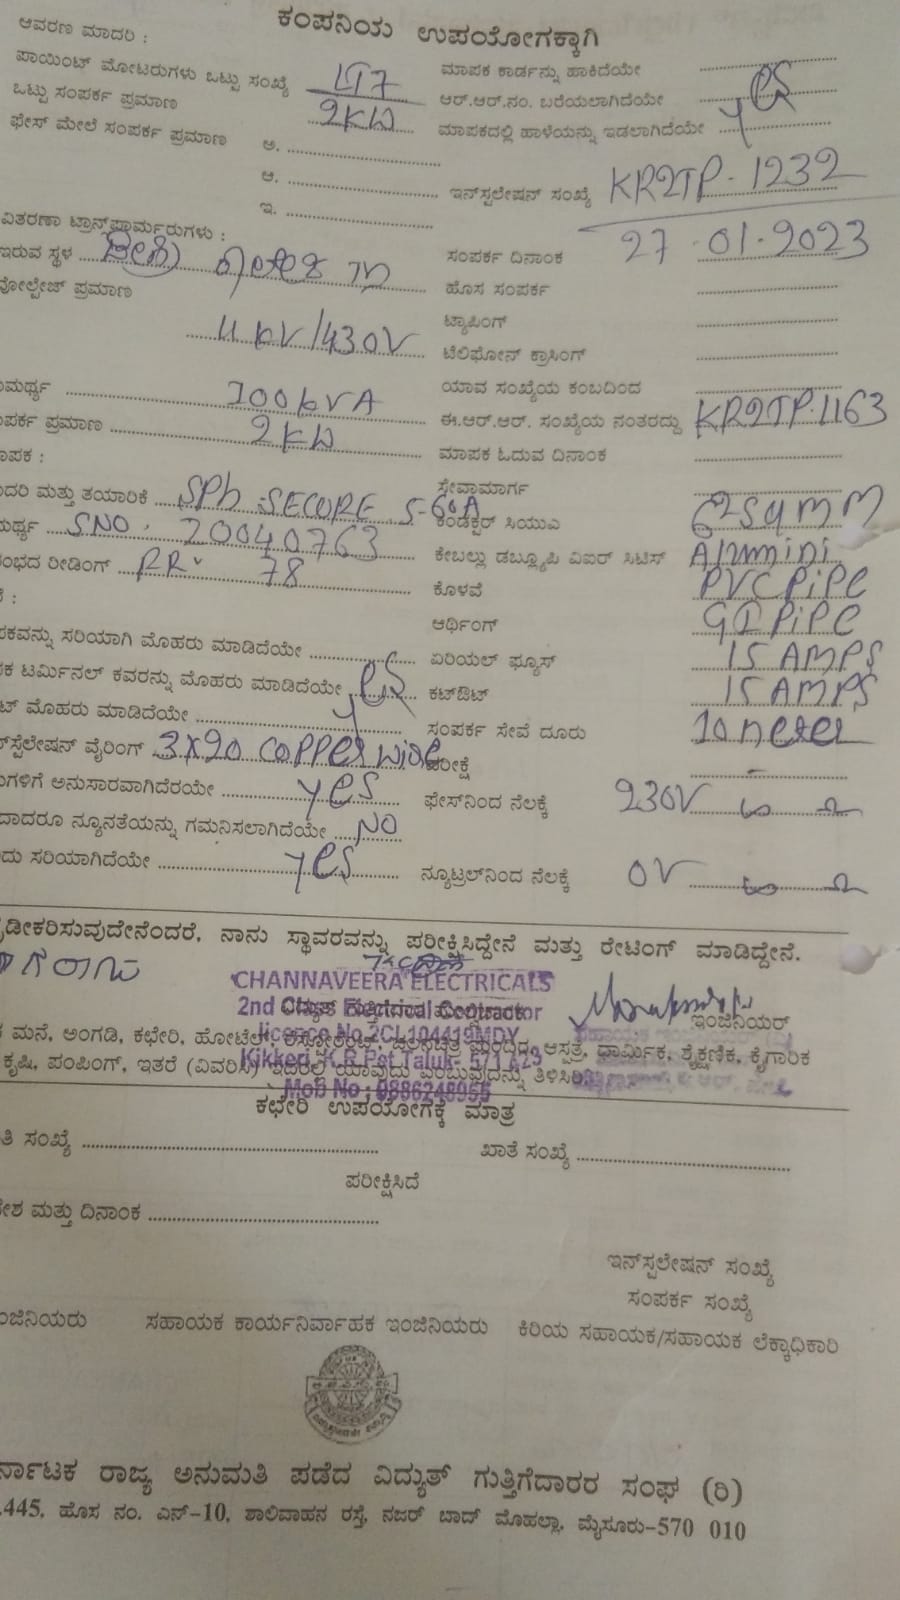 ಕಂಪನಿಯ ಉಪಯೋಗಕ್ಕಾಗಿ
ಆವರಣ ಮಾದರಿ :
ಪಾಯಿಂಟ್ ಮೋಟರುಗಳು ಒಟ್ಟು ಸಂಖ್ಯೆ LT7 ಮಾಪಕ ಕಾರ್ಡನ್ನು ಹಾಕಿದೆಯೇ
ಒಟ್ಟು ಸಂಪರ್ಕ ಪ್ರಮಾಣ 2KW ಆರ್.ಆರ್.ನಂ. ಬರೆಯಲಾಗಿದೆಯೇ yes
ಫೇಸ್ ಮೇಲೆ ಸಂಪರ್ಕ ಪ್ರಮಾಣ ಅ. ಮಾಪಕದಲ್ಲಿ ಹಾಳೆಯನ್ನು ಇಡಲಾಗಿದೆಯೇ
ಆ. ಇನ್‌ಸ್ಪಲೇಷನ್ ಸಂಖ್ಯೆ KR2TP-1232
ಇ.
ವಿತರಣಾ ಟ್ರಾನ್ಸ್‌ಫಾರ್ಮರುಗಳು : ಸಂಪರ್ಕ ದಿನಾಂಕ 27-01-2023
ಇರುವ ಸ್ಥಳ ಹೊಸ ಸಂಪರ್ಕ
ವೋಲ್ಟೇಜ್ ಪ್ರಮಾಣ ಟ್ಯಾಪಿಂಗ್
11 kV/430V ಟೆಲಿಫೋನ್ ಕ್ರಾಸಿಂಗ್
ಮರ್ಥ್ಯ 100kVA ಯಾವ ಸಂಖ್ಯೆಯ ಕಂಬದಿಂದ
ಪರ್ಕ ಪ್ರಮಾಣ 2KW ಈ.ಆರ್.ಆರ್. ಸಂಖ್ಯೆಯ ನಂತರದ್ದು KR2TP-1163
ಾಪಕ : ಮಾಪಕ ಓದುವ ದಿನಾಂಕ
ದರಿ ಮತ್ತು ತಯಾರಿಕೆ SPh SECURE 5-60A ಸೇವಾಮಾರ್ಗ
ಮರ್ಥ್ಯ SNO. 20040763 ಕಂಡಕ್ಟರ್ ಸಿಯುಎ 2sqmm
ಂಭದ ರೀಡಿಂಗ್ RR 78 ಕೇಬಲ್ಲು ಡಬ್ಲ್ಯೂಪಿ ವಿಐಆರ್ ಸಿಟಿಸ್ Alumini
ಕೊಳವೆ PVC PiPe
ಆರ್ಥಿಂಗ್ GI PiPe
ಕವನ್ನು ಸರಿಯಾಗಿ ಮೊಹರು ಮಾಡಿದೆಯೇ ಏರಿಯಲ್ ಫ್ಯೂಸ್ 15 AMPS
ಕ ಟರ್ಮಿನಲ್ ಕವರನ್ನು ಮೊಹರು ಮಾಡಿದೆಯೇ yes ಕಟ್‌ಔಟ್ 15 AMPS
ಟ್ ಮೊಹರು ಮಾಡಿದೆಯೇ ಸಂಪರ್ಕ ಸೇವೆ ದೂರು 10 meter
ನ್‌ಸ್ಪೆಲೇಷನ್ ವೈರಿಂಗ್ 3x20 copper wire ಪರೀಕ್ಷೆ
ುಗಳಿಗೆ ಅನುಸಾರವಾಗಿದೆರಯೇ yes ಫೇಸ್‌ನಿಂದ ನೆಲಕ್ಕೆ 230V
ದಾದರೂ ನ್ಯೂನತೆಯನ್ನು ಗಮನಿಸಲಾಗಿದೆಯೇ NO
ದು ಸರಿಯಾಗಿದೆಯೇ yes ನ್ಯೂಟ್ರಲ್‌ನಿಂದ ನೆಲಕ್ಕೆ 0V
ಡೀಕರಿಸುವುದೇನೆಂದರೆ, ನಾನು ಸ್ಥಾವರವನ್ನು ಪರೀಕ್ಷಿಸಿದ್ದೇನೆ ಮತ್ತು ರೇಟಿಂಗ್ ಮಾಡಿದ್ದೇನೆ.
CHANNAVEERA ELECTRICALS
2nd Class Electrical Contractor ಇಂಜಿನಿಯರ್
licence No 2CL104419MDY
ಮನೆ, ಅಂಗಡಿ, ಕಛೇರಿ, ಹೋಟೆಲ್, ಆಸ್ಪತ್ರೆ, ಧಾರ್ಮಿಕ, ಶೈಕ್ಷಣಿಕ, ಕೈಗಾರಿಕ
Kikkeri K.R.Pet Taluk- 571 423
ಕೃಷಿ, ಪಂಪಿಂಗ್, ಇತರೆ (ವಿವರಿಸಿ) ಇದರಲ್ಲಿ ಯಾವುದು ಎಂಬುವುದನ್ನು ತಿಳಿಸಿರಿ
Mob No : 9886246955
ಕಛೇರಿ ಉಪಯೋಗಕ್ಕೆ ಮಾತ್ರ
ತಿ ಸಂಖ್ಯೆ ಖಾತೆ ಸಂಖ್ಯೆ
ಪರೀಕ್ಷಿಸಿದೆ
ೇಶ ಮತ್ತು ದಿನಾಂಕ
ಇನ್‌ಸ್ಪಲೇಷನ್ ಸಂಖ್ಯೆ
ಸಂಪರ್ಕ ಸಂಖ್ಯೆ
ಂಜಿನಿಯರು ಸಹಾಯಕ ಕಾರ್ಯನಿರ್ವಾಹಕ ಇಂಜಿನಿಯರು ಕಿರಿಯ ಸಹಾಯಕ/ಸಹಾಯಕ ಲೆಕ್ಕಾಧಿಕಾರಿ
ರ್ನಾಟಕ ರಾಜ್ಯ ಅನುಮತಿ ಪಡೆದ ವಿದ್ಯುತ್ ಗುತ್ತಿಗೆದಾರರ ಸಂಘ (ರಿ)
.445, ಹೊಸ ನಂ. ಎನ್-10, ಶಾಲಿವಾಹನ ರಸ್ತೆ, ನಜರ್ ಬಾದ್ ಮೊಹಲ್ಲಾ, ಮೈಸೂರು-570 010